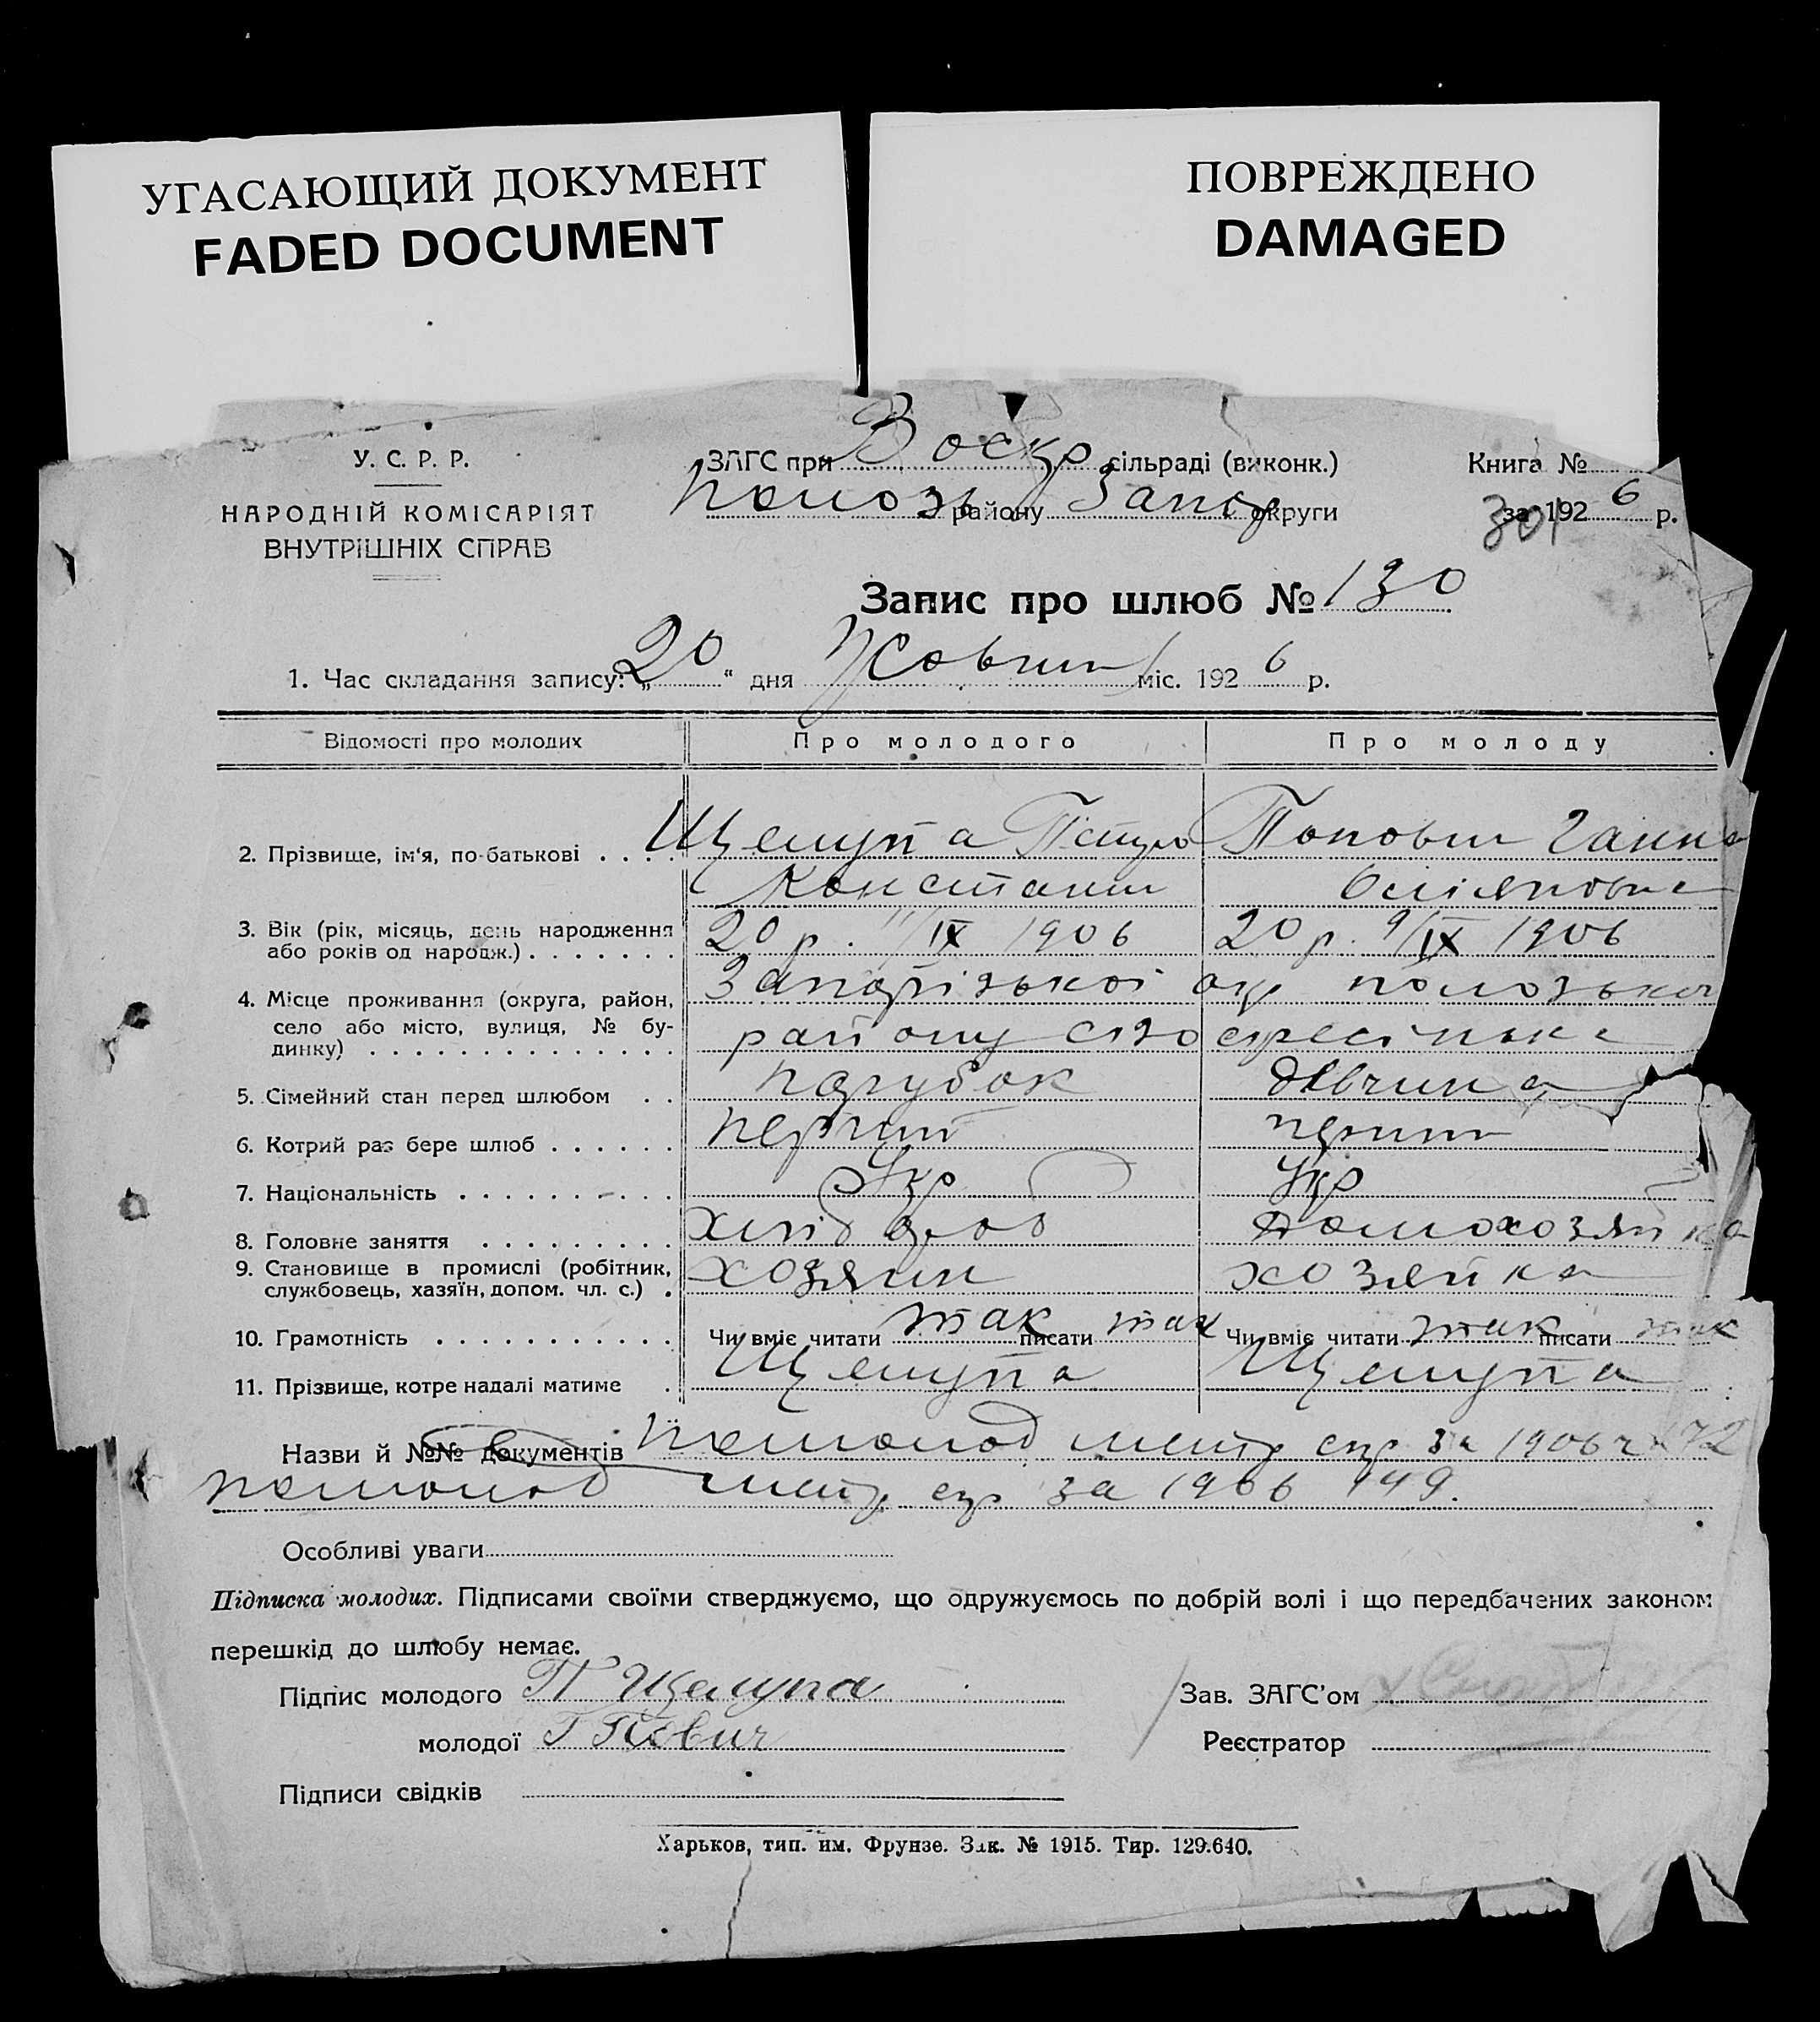 УГАСАЮЩИЙ ДОКУМЕНТ
FADED DOCUMENT
ПОВРЕЖДЕНО
DAMAGED
У. С. Р. Р.
НАРОДНІЙ КОМІСАРІЯТ
ВНУТРІШНІХ СПРАВ
ЗАГС при Воскр сільраді (виконк.)
Полозь району Запор округи
Книга №
за 1926 р.
301
Запис про шлюб № 130
1. Час складання запису: „20“ дня Жовтня міс. 1926 р.
Відомості про молодих Про молодого Про молоду
2. Прізвище, ім‘я, по-батькові . . . . Щемупа Петро Попович Ганна
Констант
3. Вік (рік, місяць, день народження 20 р. 11/IX 1906 20 р. 9/IX 1906
або років од народж.) . . . . . . .
4. Місце проживання (округа, район, Запорізької окр полозького
село або місто, вулиця, № бу- району
динку) . . . . . . . . . . . . . .
5. Сімейний стан перед шлюбом . . парубок дівчина
6. Котрий раз бере шлюб . . . . . . перший перший
7. Національність . . . . . . . . . . Укр Укр
8. Головне заняття . . . . . . . . . хлібороб домохозяйка
9. Становище в промислі (робітник, хозяин хозяйка
службовець, хазяїн, допом. чл. с.) .
10. Грамотність . . . . . . . . . . . . Чи вміє читати так писати так Чи вміє читати так писати так
11. Прізвище, котре надалі матиме . Щемупа Щемупа
Назви й №№ документів метр за 1906 72
метр за 1906 149.
Особливі уваги
Підписка молодих. Підписами своїми стверджуємо, що одружуємось по добрій волі і що передбачених законом
перешкід до шлюбу немає.
Підпис молодого П Щемупа
Зав. ЗАГС’ом
молодої Г Попович
Реєстратор
Підписи свідків
Харьков, тип. им. Фрунзе. Зак. № 1915. Тир. 129.640.